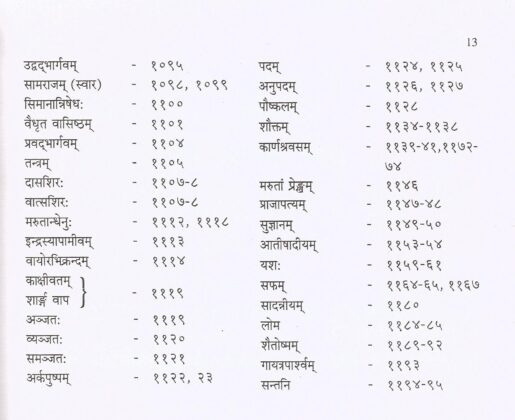 13
उद्वद्भार्गवम् - १०९५
सामराजम् (स्वार) - १०९८, १०९९
सिमानान्निषेधः - ११००
वैधृत वासिष्ठम् - ११०१
प्रवद्भार्गवम् - ११०४
तन्त्रम् - ११०५
दासशिरः - ११०७-८
वात्सशिरः - ११०७-८
मरुतान्धेनुः - १११२, १११८
इन्द्रस्यापामीवम् - १११३
वायोरभिक्रन्दम् - १११४
काक्षीवतम्
शार्ङ्ग वाप } - १११९
अञ्जतः - १११९
व्यञ्जतः - ११२०
समञ्जतः - ११२१
अर्कपुष्पम् - ११२२, २३
पदम् - ११२४, ११२५
अनुपदम् - ११२६, ११२७
पौष्कलम् - ११२८
शौक्तम् - ११३४-११३८
कार्णश्रवसम् - ११३९-४१,११७२-
७४
मरुतां प्रेङ्खम् - ११४६
प्राजापत्यम् - ११४७-४८
सुज्ञानम् - ११४९-५०
आतीषादीयम् - ११५३-५४
यशः - ११५९-६१
सफम् - ११६४-६५, ११६७
सादन्नीयम् - ११८०
लोम - ११८४-८५
शैतोष्मम् - ११८९-९२
गायत्रपार्श्वम् - ११९३
सन्तनि - ११९४-९५